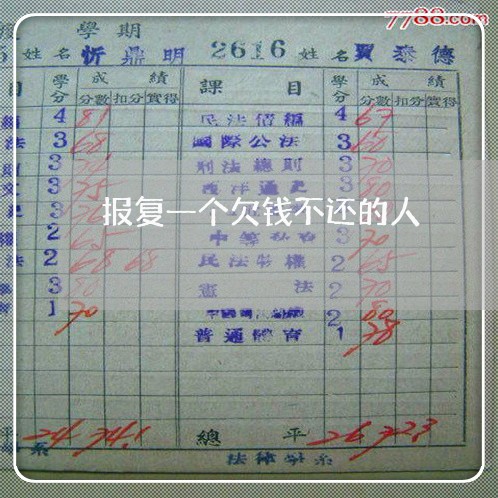 7788.com
學期
姓名 忻鼎明 2616 姓名 賈泰德
目 學分 成績 課目 學分 成績
分數 扣分 實得 分數 扣分 實得
4 81 民法債編 4 67
法 3 68 國際公法 3 60
3 刑法總則 3 70
3 75 西洋通史 3 80
报复一个欠钱不还的人
2 65 3 70
法 2 68 68 民法物權 2 65
3 80 憲法 2 70
1 70 2 80
普通體育 1 78
平 24 74.1 總平 26 72.3
系 法律學系